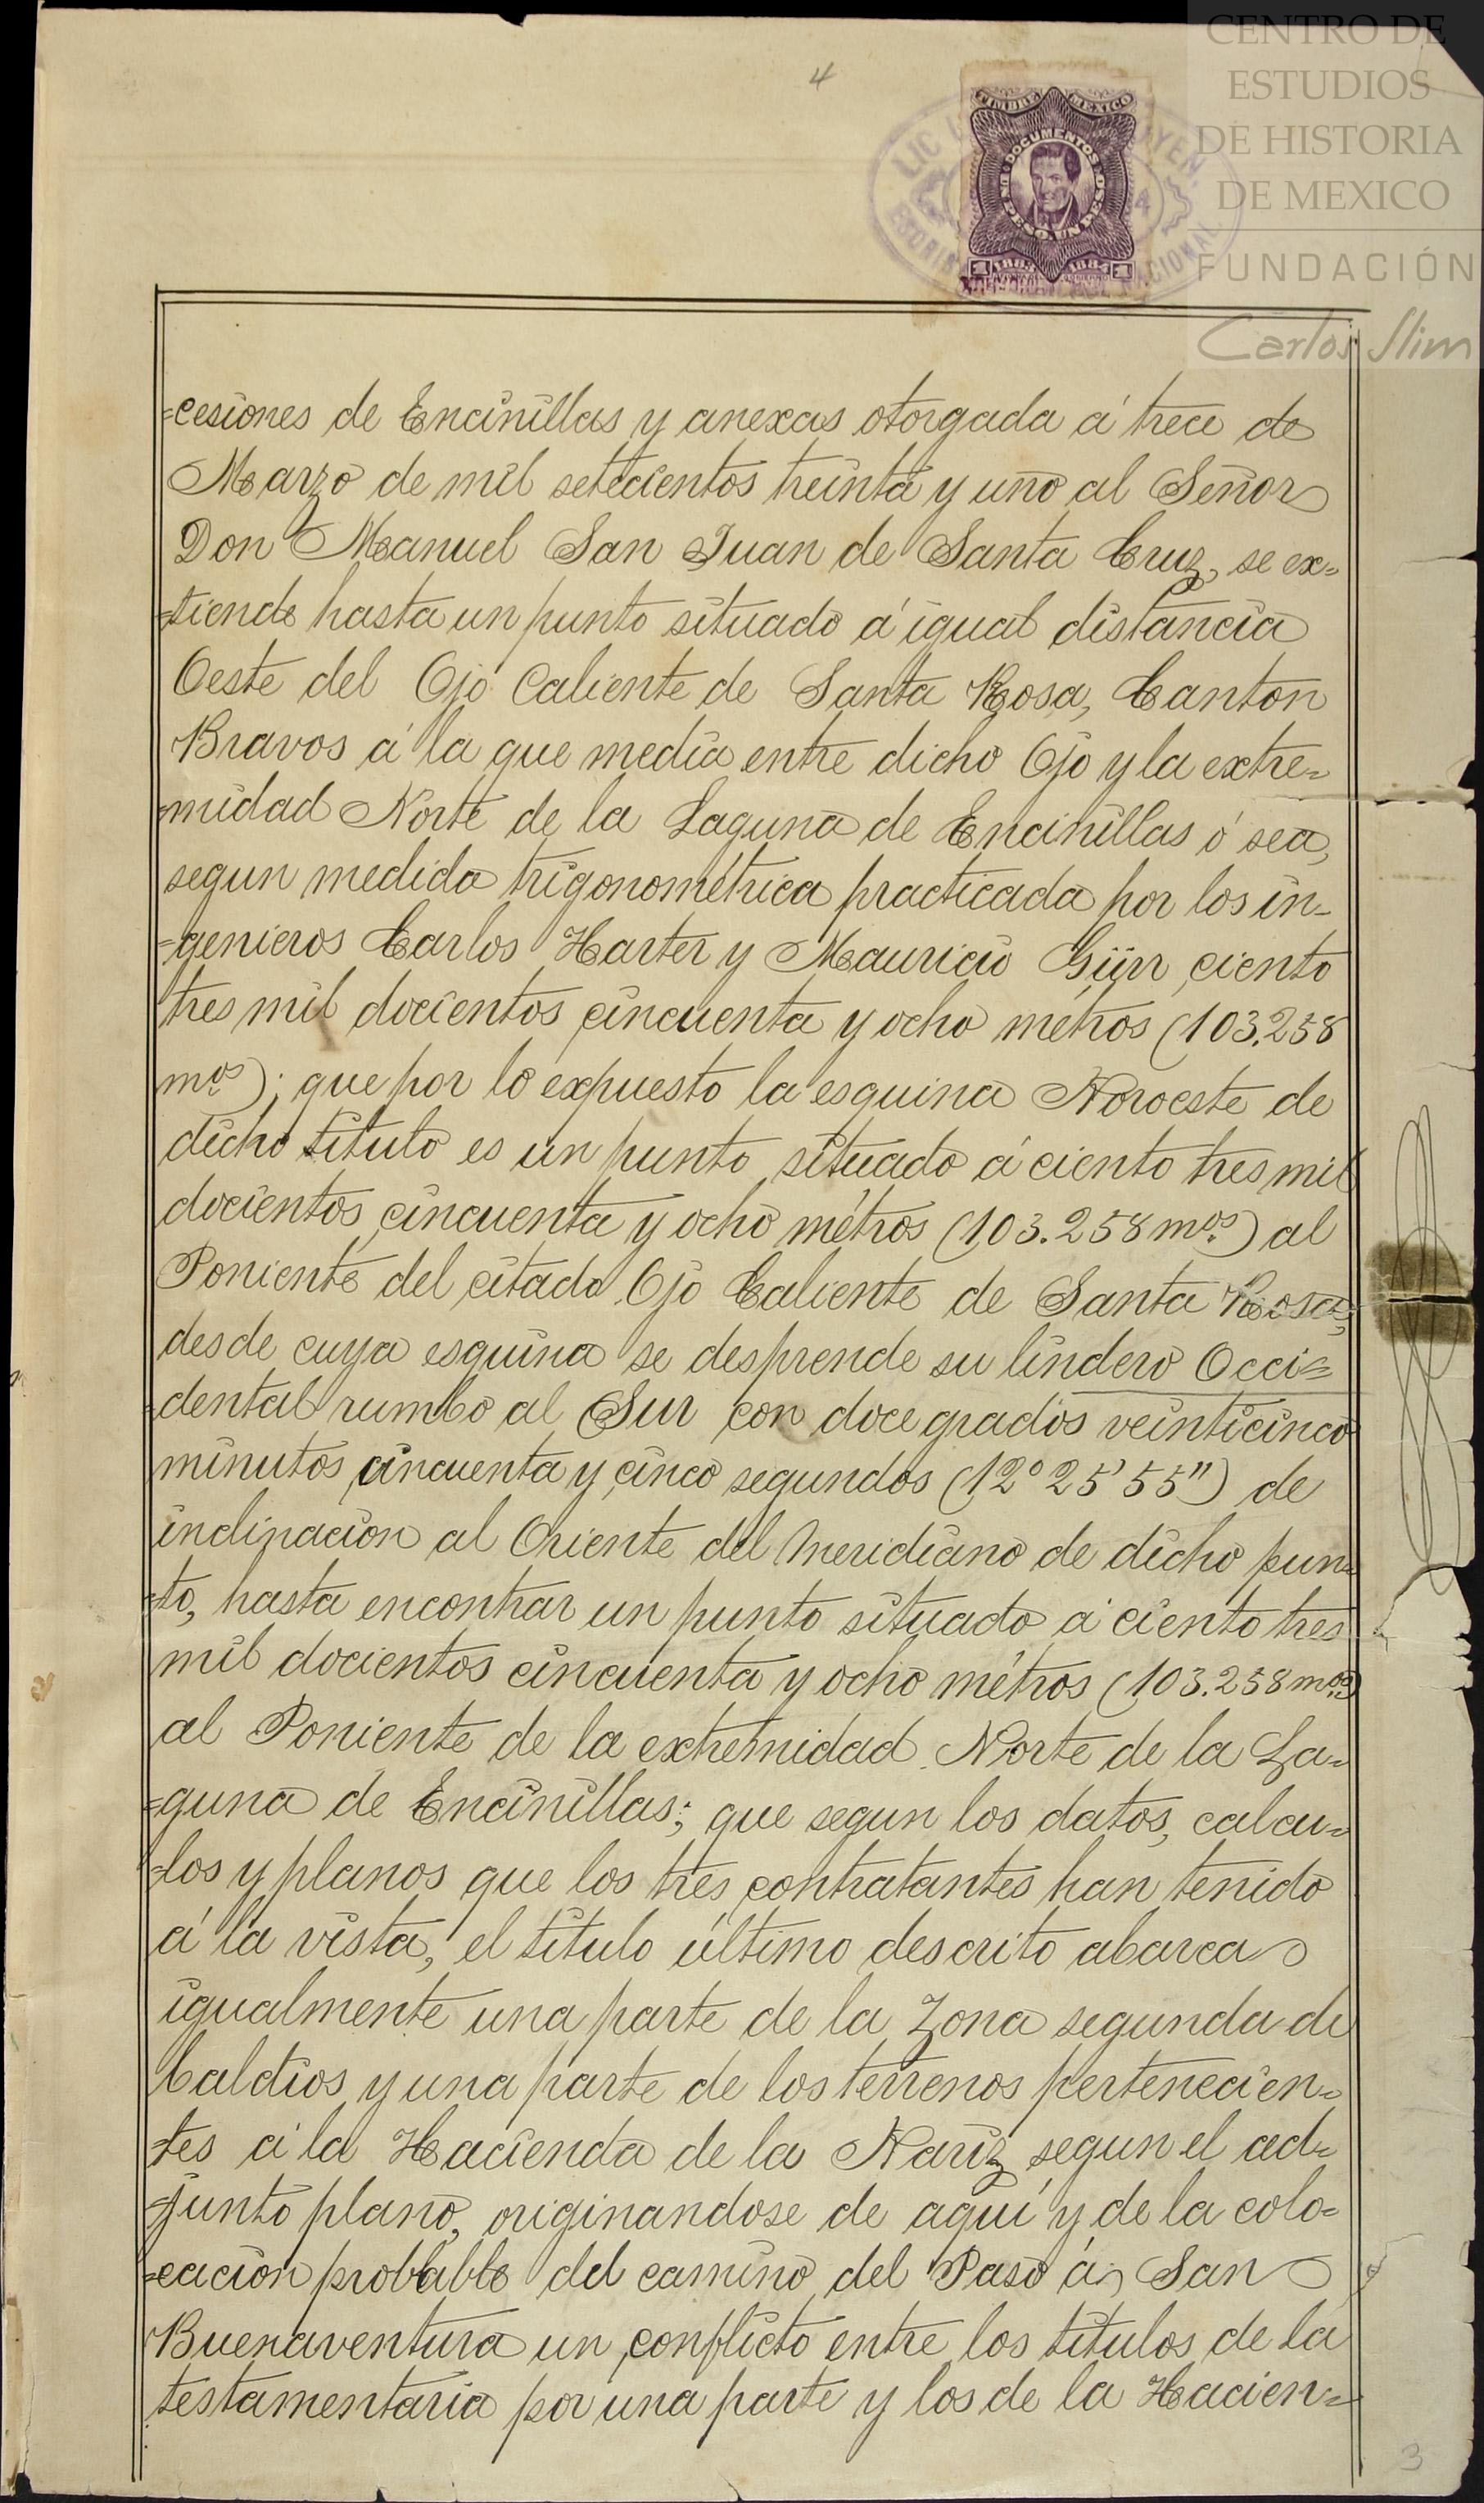 CENTRO DE
ESTUDIOS
DE HISTORIA
DE MEXICO
FUNDACIÓN
Carlos Slim
4
TIMBRE MEXICO
DOCUMENTOS
UN PESO
1883 1884
LIC
=cesiones de Encinillas y anexas otorgada á trece de
Marzo de mil setecientos treinta y uno al Señor
Don Manuel San Juan de Santa Cruz, se ex=
=tiende hasta un punto situado á igual distancia
Oeste del Ojo Caliente de Santa Rosa, Canton
Bravos á la que media entre dicho Ojo y la extre=
=midad Norte de la Laguna de Encinillas ó sea,
segun medida trigonométrica practicada por los in-
=genieros Carlos Harter y Mauricio Gürr ciento
tres mil docientos cincuenta y ocho métros (103.258
mos); que por lo expuesto la esquina Noroeste de
dicho titulo es un punto situado á ciento tres mil
docientos cincuenta y ocho métros (103.258 mos) al
Poniente del citado Ojo Caliente de Santa Rosa,
desde cuya esquina se desprende su lindero Occi=
=dental rumbo al Sur con doce grados veinticinco
minutos cincuenta y cinco segundos (12° 25' 55") de
inclinacion al Oriente del Meridiano de dicho pun=
=to, hasta encontrar un punto situado á ciento tres
mil docientos cincuenta y ocho métros (103.258 mos)
al Poniente de la extremidad Norte de la La=
=guna de Encinillas; que segun los datos, calcu=
=los y planos que los tres contratantes han tenido
á la vista, el titulo último descrito abarca
igualmente una parte de la Zona segunda de
baldios y una parte de los terrenos pertenecien=
=tes á la Hacienda de la Nariz segun el ad=
=junto plano, originandose de aquí y de la colo=
=cacion probable del camino del Paso á San
Buenaventura un conflicto entre los titulos de la
testamentaria por una parte y los de la Hacien=
3